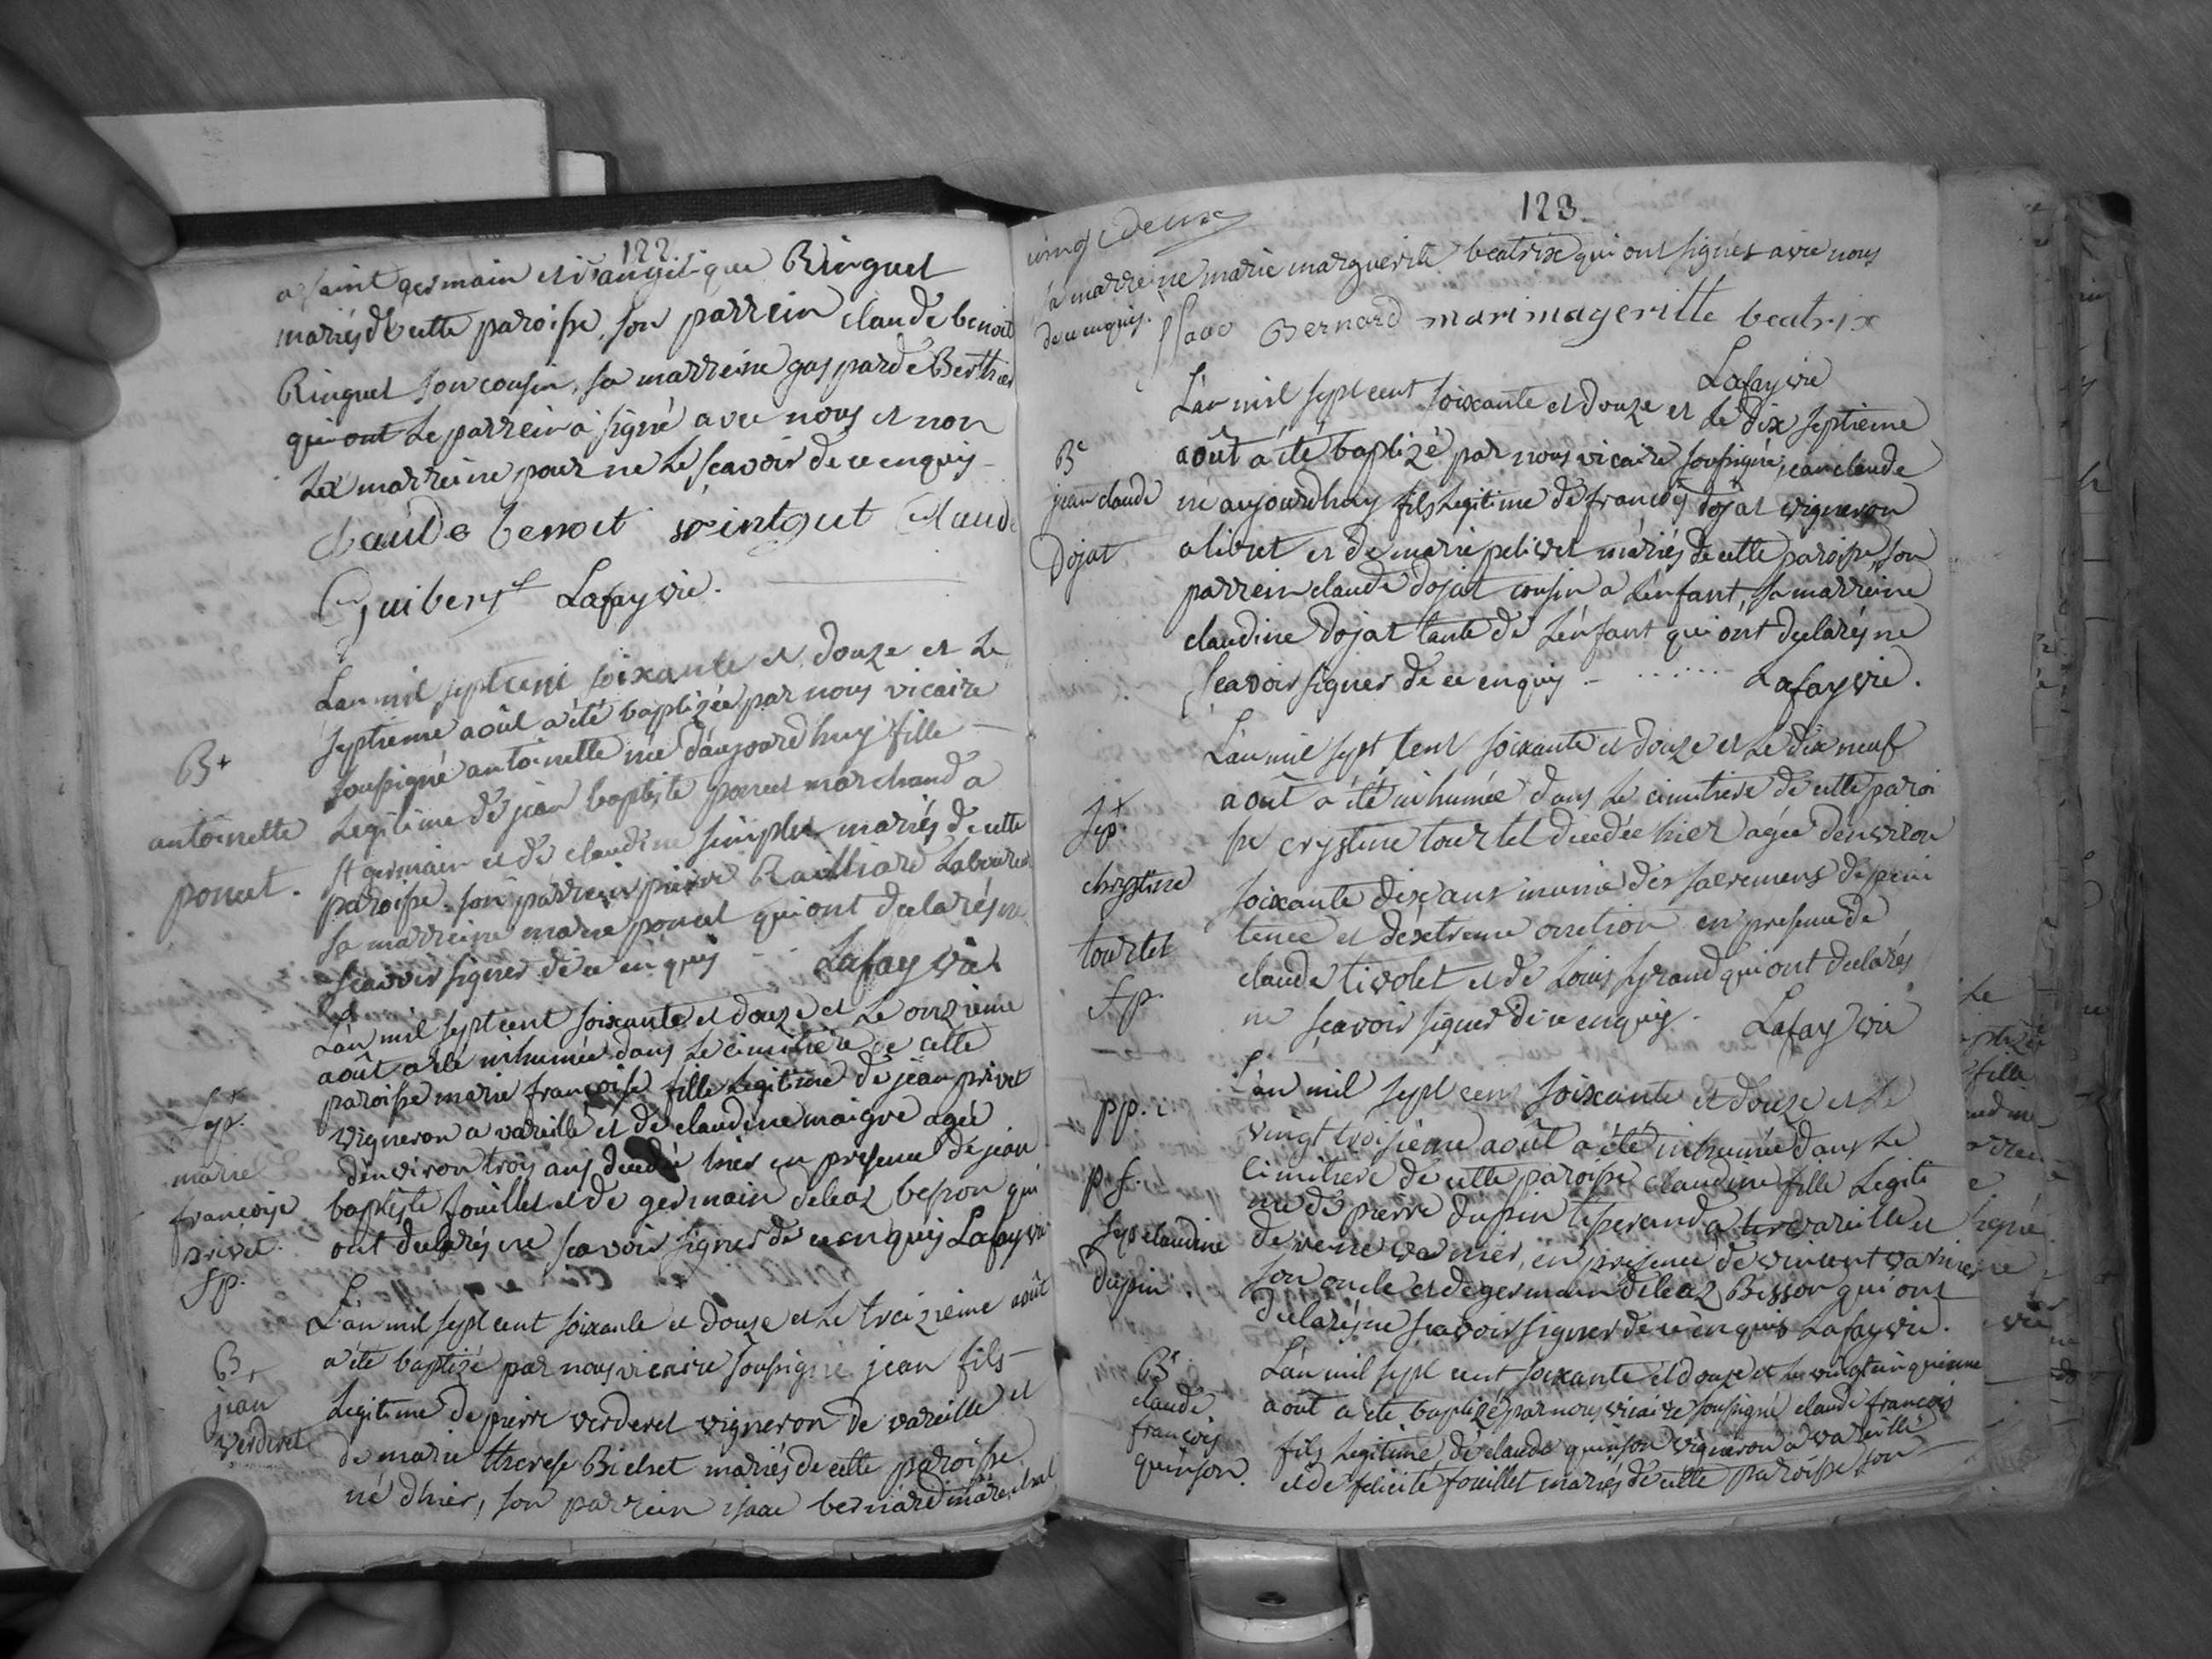 122.
a saint germain et d'angelique Ringuet
mariés de cette paroisse, son parrein claude benoit
Ringuet son cousin, sa marreine gasparde Berthet
qui ont le parrein à signé avec nous et non
la marreine pour ne le sçavoir de ce enquis
claude benoit reintguet Claude
Guibert Lafay vic.
L'an mil sept cent soixante et douze et le
septieme août a été baptizée par nous vicaire
soussigné antoinette née d'aujourdhuy fille
legitime de jean baptiste poncet marchand a
st germain et de claudine simplet mariés de cette
paroisse. son parrein pierre Railliard laboureur
sa marreine marie poncet qui ont declarés ne
scavoir signer de ce enquis - Lafay vic.
B+
antoinette
poncet.
L'an mil sept cent soixante et douze et le onzieme
août a été inhumée dans le cimitière de cette
paroisse marie françoise fille legitime de jean privet
vigneron a vareille et de claudine maigre agée
d'environ trois ans decedée hier en presence de jean
baptiste fouillet et de germain deleaz besson qui
ont declarés ne scavoir signer de ce enquis Lafay vic
sep.
marie
françoise
privet.
fp.
L'an mil sept cent soixante et douze et le treizieme août
a été baptizé par nous vicaire soussigné jean fils
legitime de pierre verderet vigneron de vareille et
de marie therese Bielset mariés de cette paroisse
né d'hier, son parrein isaac bernard maréchal
B+
jean
verderet
123.
vingt deux
sa marreine marie marguerite beatrix qui ont signés avec nous
de ce enquis. Isaac Bernard marimageritte beatrix
Lafay vic
L'an mil sept cent soixante et douze et le dix septieme
août a été baptizé par nous vicaire soussigné, jean claude
né aujourdhuy fils legitime de françois dojat vigneron
a livet et de marie pelivet mariés de cette paroisse, son
parrein claude dojat cousin a l'enfant, sa marreine
claudine dojat tante de l'enfant qui ont declarés ne
scavoir signer de ce enquis - ...... Lafay vic.
Be
jean claude
Dojat
L'an mil sept cent soixante et douze et le dix neuf
août a été inhumée dans le cimitiere de cette paroi
sse crystine tourtel decedée hier agée d'environ
soixante dix ans munie des sacremens de peni
tence et d'extreme onction en presence de
claude tivolet et de Louis legrand qui ont declarés
ne scavoir signer de ce enquis. Lafay vic
sep.
chrystine
tourtel
fp.
L'an mil sept cent soixante et douze et le
vingt troisieme août a été inhumée dans le
cimitiere de cette paroisse claudine fille legiti
me de pierre dupin tisserand a vareille et
de reine varnier, en presence de vincent varnier
son oncle et de germain deleaz Besson qui ont
declarés ne scavoir signer de ce enquis Lafay vic.
pp.
p f.
sep claudine
dupin.
L'an mil sept cent soixante et douze et le vingt cinquieme
août a été baptizé par nous vicaire soussigné claude françois
fils legitime de claude quinson vigneron a vareille
et de felicité fouillet mariés de cette paroisse son
Be
claude
françois
quinson.